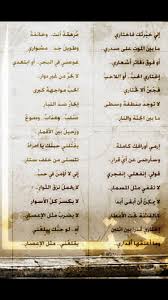 إني خيرتك فاختاري
ما بين الموت على صدري
أو فوق دفاتر أشعاري
إختاري الحب .. أو اللاحب
فجبن ألا تختاري
لا توجد منطقة وسطى
ما بين الجنة والنار
إرمي أوراقك كاملة
وسأرضى عن أي قرار
قولي. إنفعلي. إنفجري
لا تقفي مثل المسمار
لا يمكن أن أبقى أبدا
كالقشة تحت الأمطار
إختاري قدرا بين اثنين
وما أعنفها أقداري
مرهقة أنت.. وخائفة
وطويل جدا.. مشواري
غوصي في البحر.. أو ابتعدي
لا بحر من غير دوار
الحب مواجهة كبرى
إبحار ضد التيار
صلب.. وعذاب.. ودموع
ورحيل بين الأقمار
يقتلني جبنك يا امرأة
تتسلى من خلف ستار
إني لا أؤمن في حب
لا يحمل نزق الثوار
لا يكسر كل الأسوار
لا يضرب مثل الإعصار
آه.. لو حبك يبلعني
يقلعني.. مثل الإعصار